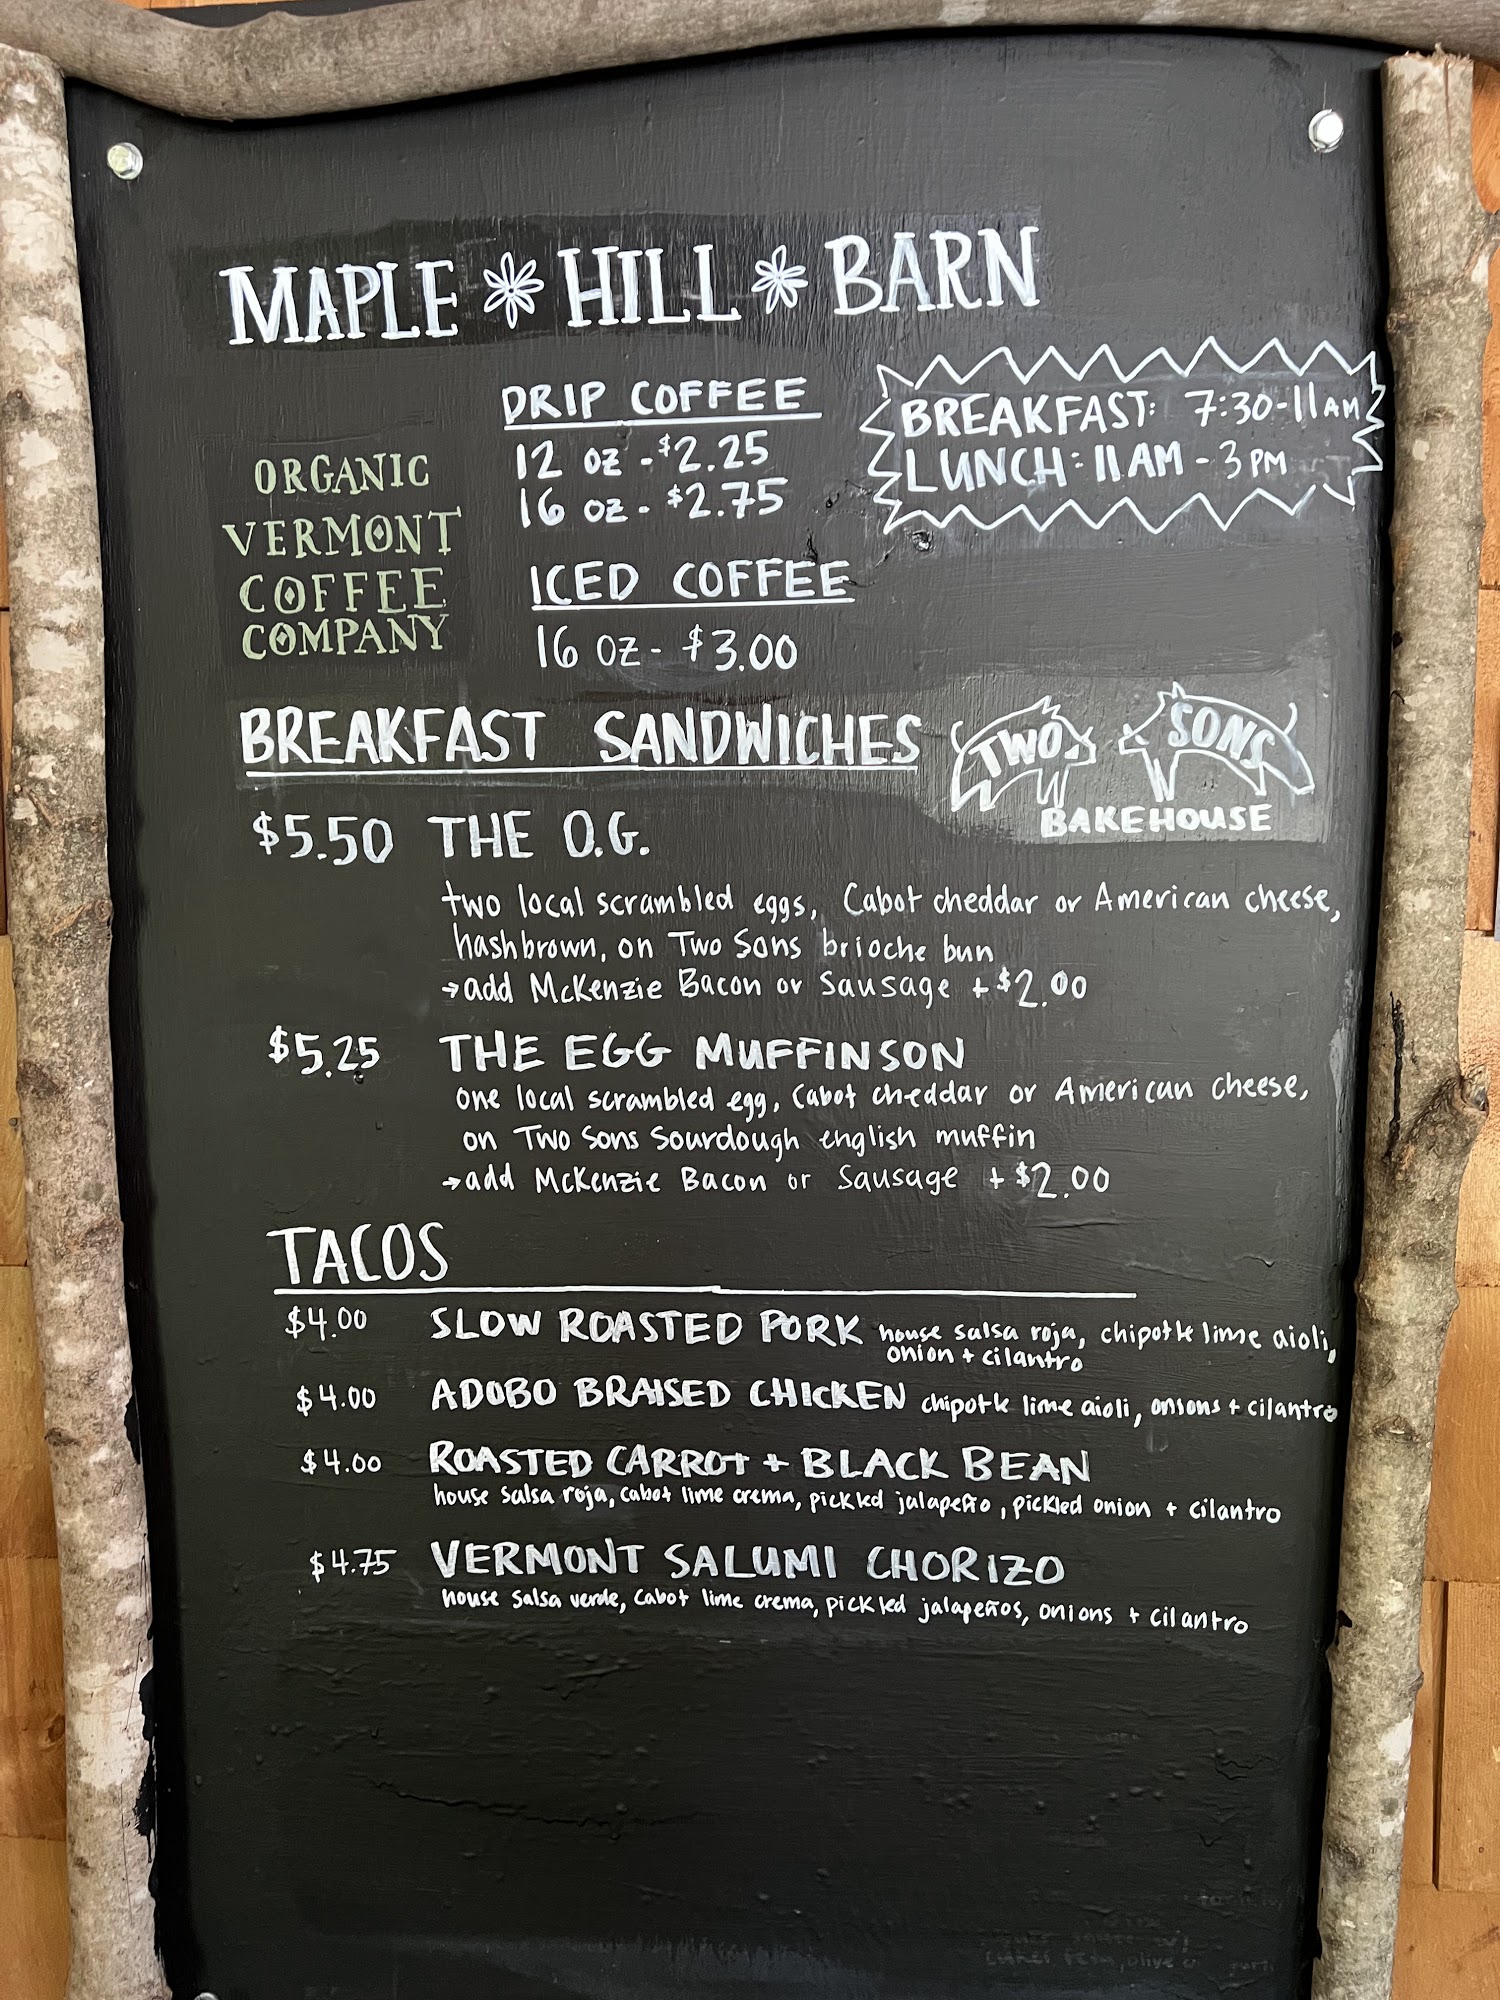 MAPLE HILL BARN
ORGANIC
VERMONT
COFFEE
COMPANY
DRIP COFFEE
12 oz - $2.25
16 oz - $2.75
ICED COFFEE
16 oz - $3.00
BREAKFAST: 7:30-11AM
LUNCH: 11AM - 3PM
BREAKFAST SANDWICHES
TWO SONS
BAKEHOUSE
$5.50 THE O.G.
two local scrambled eggs, Cabot cheddar or American cheese,
hashbrown, on Two Sons brioche bun
→add McKenzie Bacon or Sausage + $2.00
$5.25 THE EGG MUFFINSON
one local scrambled egg, Cabot cheddar or American cheese,
on Two Sons Sourdough english muffin
→add McKenzie Bacon or Sausage + $2.00
TACOS
$4.00 SLOW ROASTED PORK house salsa roja, chipotle lime aioli,
onion + cilantro
$4.00 ADOBO BRAISED CHICKEN chipotle lime aioli, onions + cilantro
$4.00 ROASTED CARROT + BLACK BEAN
house salsa roja, cabot lime crema, pickled jalapeño, pickled onion + cilantro
$4.75 VERMONT SALUMI CHORIZO
house salsa verde, cabot lime crema, pickled jalapeños, onions + cilantro